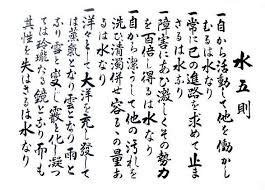 水五則
一自から活動して他を働かし
むるは水なり
一常に己の進路を求めて止ま
ざるは水なり
一障害にあひ激しくその勢力
を百倍し得るは水なり
一自から潔うして他の汚れを
洗ひ清濁併せ容るゝの量あ
るは水なり
一洋々として大洋を充し發して
は蒸気となり雲となり雨と
なり雪と変じ霰と化し凝つ
ては玲瓏たる鏡となり而も
其性を失はざるは水なり